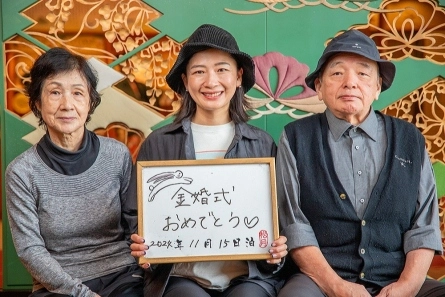 金婚式
おめでとう♡
2024年 11月 15日 泊